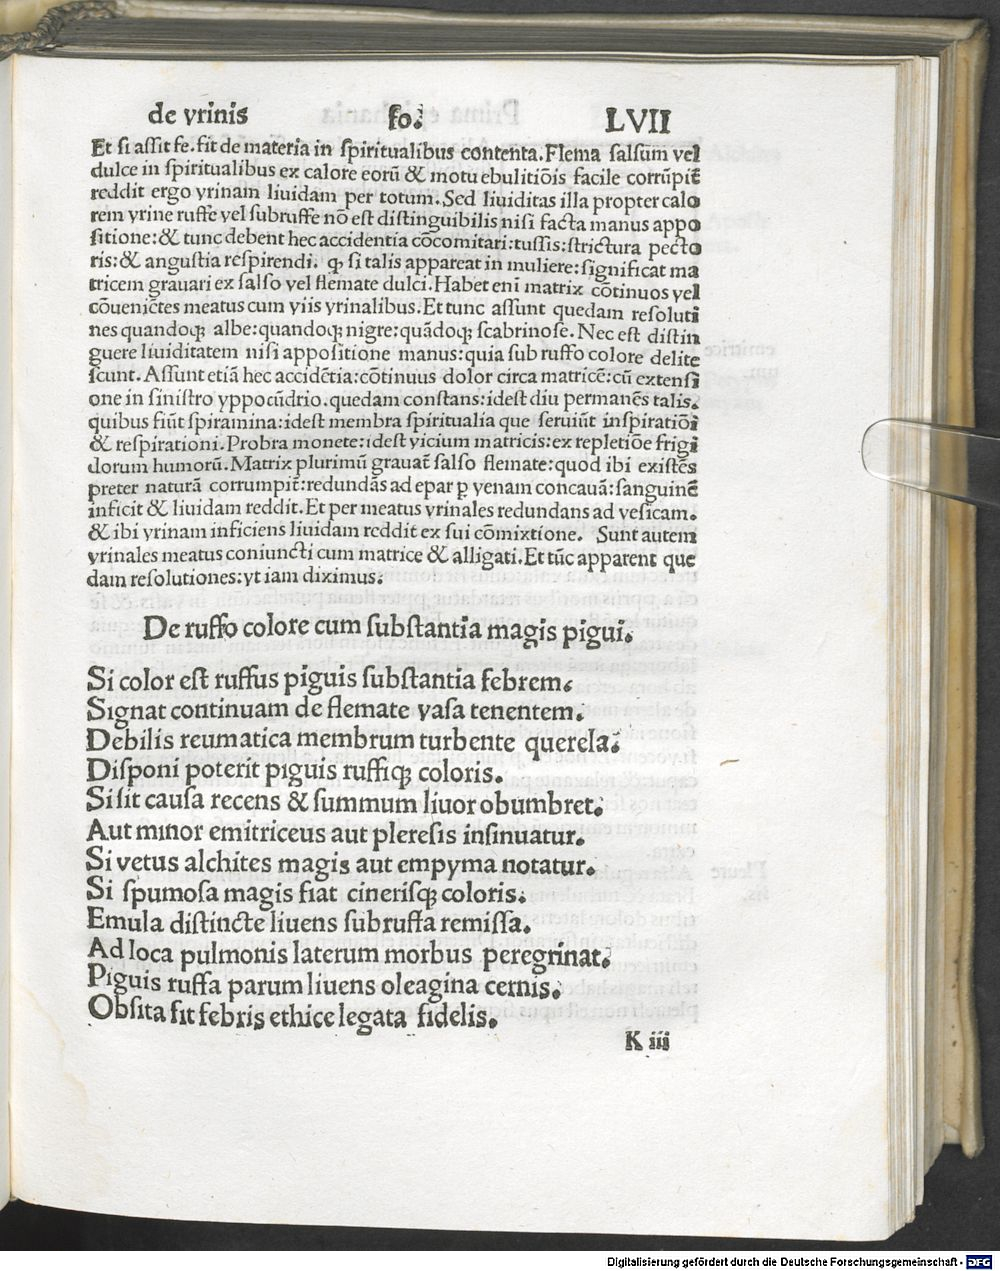 de vrinis fo. LVII
Et si assit fe. fit de materia in spiritualibus contenta. Flema salsum vel
dulce in spiritualibus ex calore eorū & motu ebulitiōis facile corrūpit̄
reddit ergo vrinam liuidam per totum. Sed liuiditas illa propter calo
rem vrine ruffe vel subruffe nō est distinguibilis nisi facta manus appo
sitione: & tunc debent hec accidentia cōcomitari: tussis: strictura pecto
ris: & angustia respirendi. ꝙ si talis appareat in muliere: significat ma
tricem grauari ex salso vel flemate dulci. Habet eni matrix cōtinuos vel
cōueniētes meatus cum viis vrinalibus. Et tunc assunt quedam resoluti
nes quandoqꝫ albe: quandoqꝫ nigre: quādoqꝫ scabrinose. Nec est distin
guere liuiditatem nisi appositione manus: quia sub ruffo colore delite
scunt. Assunt etiā hec accidētia: cōtinuus dolor circa matricē: cū extensi
one in sinistro yppocūdrio. quedam constans: idest diu permanēs talis.
quibus fiūt spiramina: idest membra spiritualia que seruiūt inspiratiōi
& respirationi. Probra monete: idest vicium matricis: ex repletiōe frigi
dorum humorū. Matrix plurimū grauat̄ salso flemate: quod ibi existēs
preter naturā corrumpit̄: redundās ad epar ꝑ venam concauā: sanguinē
inficit & liuidam reddit. Et per meatus vrinales redundans ad vesicam.
& ibi vrinam inficiens liuidam reddit ex sui cōmixtione. Sunt autem
vrinales meatus coniuncti cum matrice & alligati. Et tūc apparent que
dam resolutiones: vt iam diximus.
De ruffo colore cum substantia magis pigui.
Si color est ruffus piguis substantia febrem.
Signat continuam de flemate vasa tenentem.
Debilis reumatica membrum turbente querela.
Disponi poterit piguis ruffiqꝫ coloris.
Si sit causa recens & summum liuor obumbret.
Aut minor emitriceus aut pleresis insinuatur.
Si vetus alchites magis aut empyma notatur.
Si spumosa magis fiat cinerisqꝫ coloris.
Emula distincte liuens subruffa remissa.
Ad loca pulmonis laterum morbus peregrinat.
Piguis ruffa parum liuens oleagina cernis.
Obsita fit febris ethice legata fidelis.
K iii
Digitalisierung gefördert durch die Deutsche Forschungsgemeinschaft - DFG